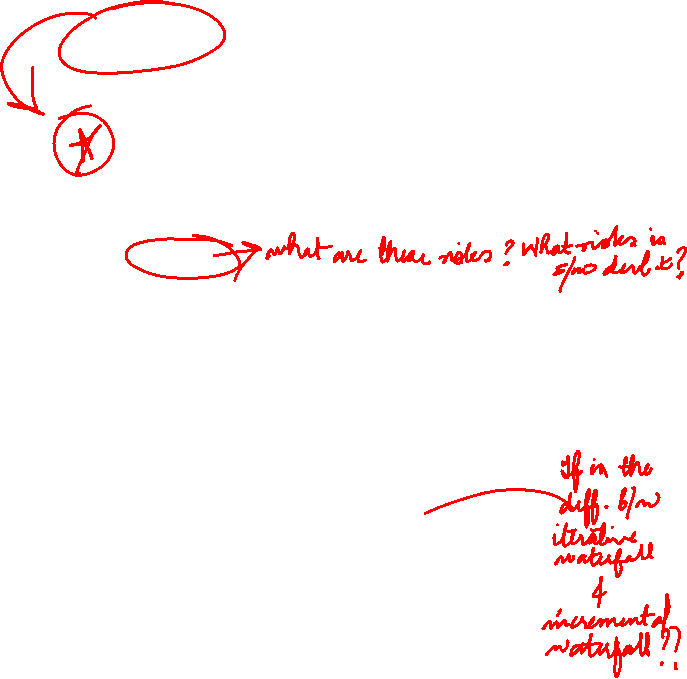 what are these risks? What risks in
s/w devl.t?
If in the
diff. b/w
iterative
waterfall
&
incremental
waterfall??